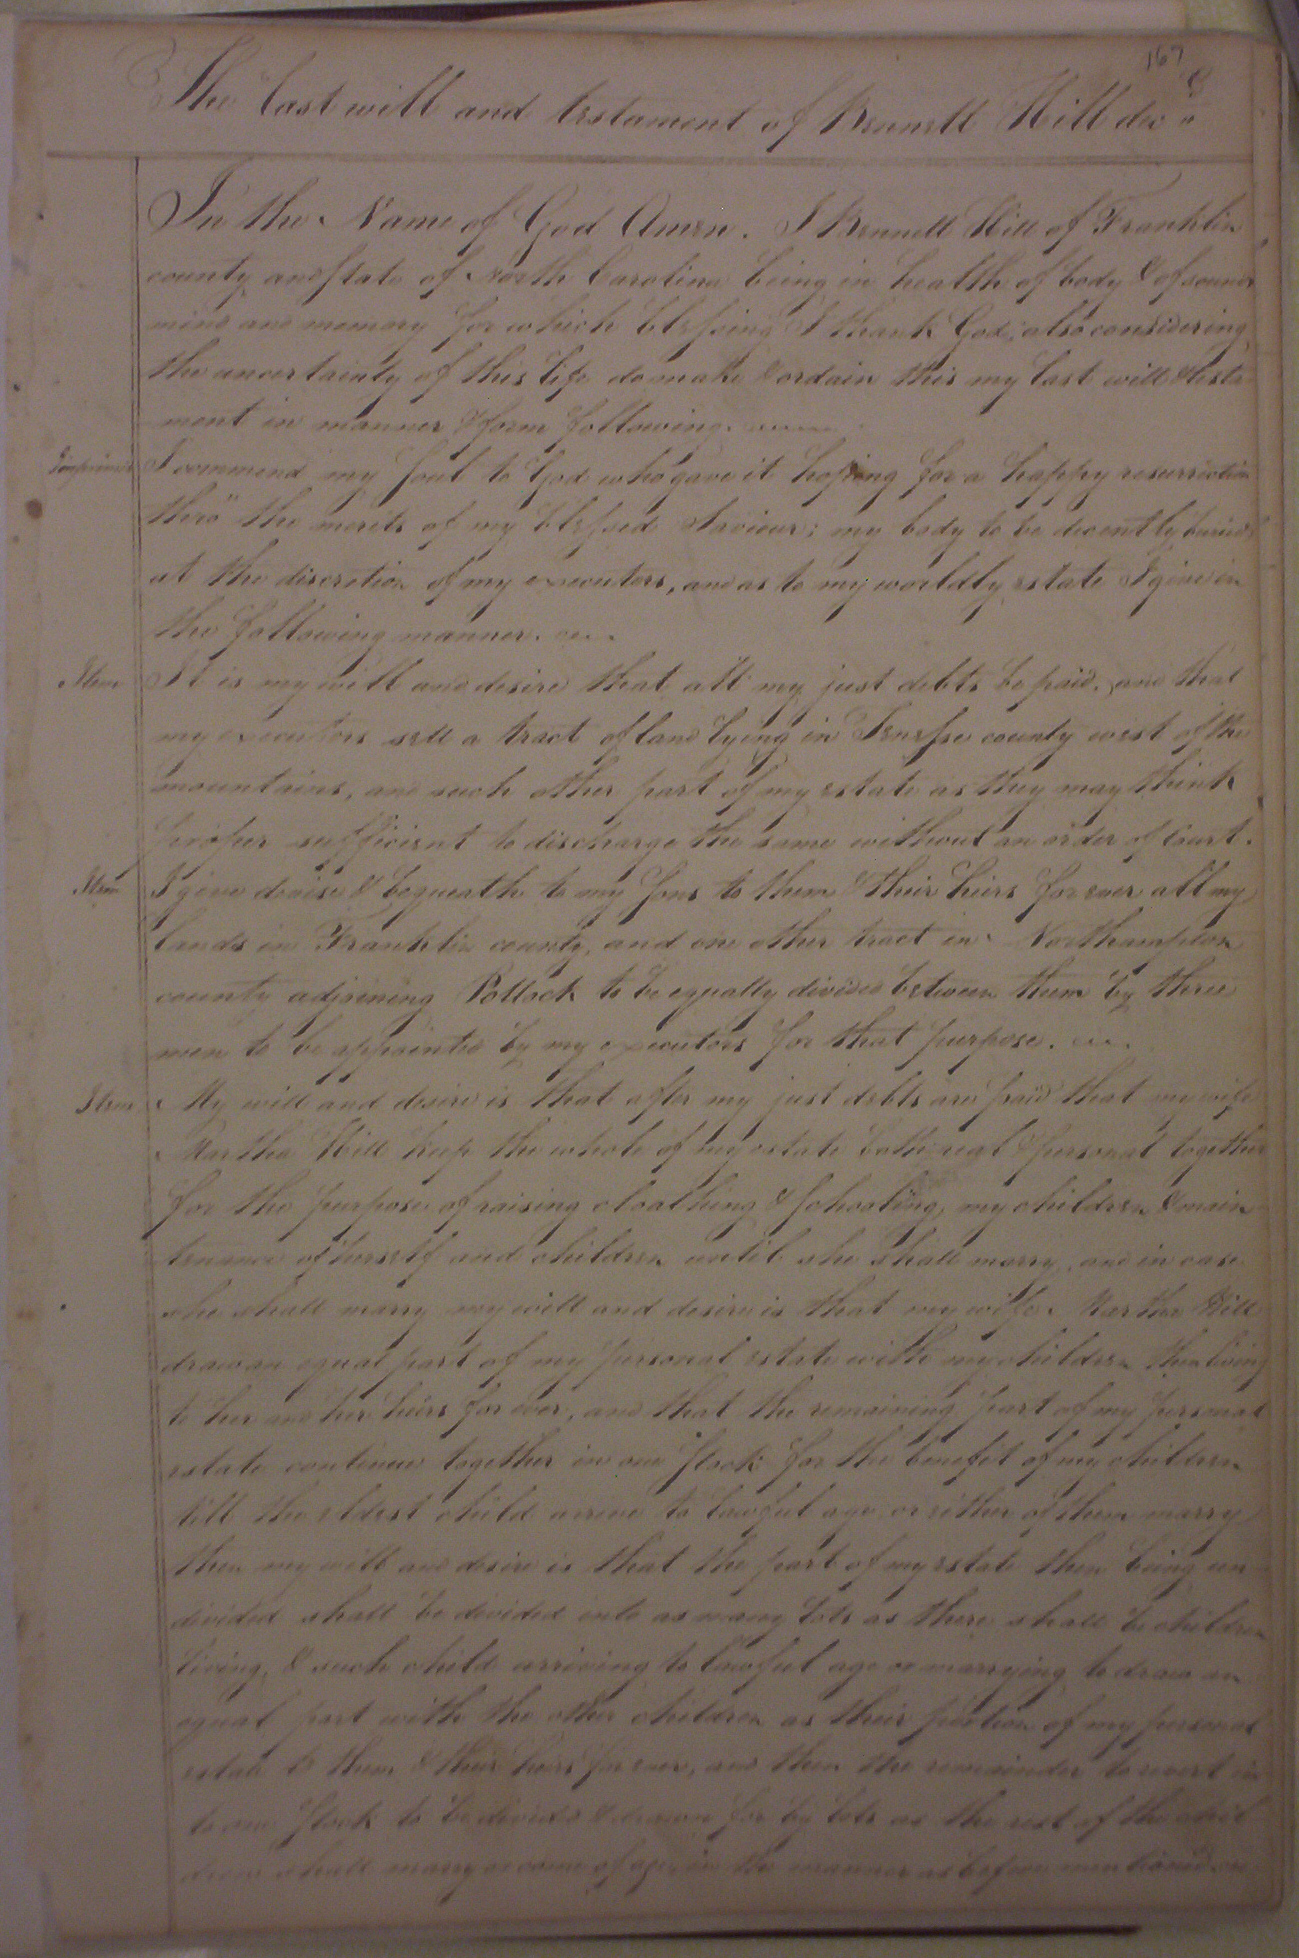 167
The last will and testament of Bennett Hill dec.d
In the Name of God Amen. I Bennett Hill of Franklin
county and state of North Carolina being in health of body & of sound
mind and memory for which blessing I thank God, also considering
the uncertainty of this life do make & ordain this my last will & testa
ment in manner & form following.
Imprimis I commend my soul to God who gave it hoping for a happy resurrection
thro" the merits of my blessed Saviour; my body to be decently buried
at the discretion of my executors, and as to my worldly estate I give in
the following manner.
Item It is my will and desire that all my just debts be paid, and that
my executors sell a tract of land lying in Tenessee county west of the
mountains, and such other part of my estate as they may think
proper sufficient to discharge the same without an order of court.
Item I give devise & bequeath to my sons to them & their heirs forever all my
lands in Franklin county, and one other tract in Northampton
county adjoining Pollock to be equally divided between them by three
men to be appointed by my executors for that purpose.
Item My will and desire is that after my just debts are paid that my wife
Martha Hill keep the whole of my estate both real & personal together
for the purpose of raising cloathing & schooling, my children & main
tenance of herself and children until she shall marry, and in case
she shall marry my will and desire is that my wife Martha Hill
draw an equal part of my personal estate with my children then living
to her and her heirs for ever, and that the remaining part of my personal
estate continue together in one stock for the benefit of my children
till the eldest child arrive to lawful age or either of them marry
then my will and desire is that the part of my estate then being un
divided shall be divided into as many lots as there shall be children
living, & such child arriving to lawful age or marrying to draw an
equal part with the other children as their portion of my personal
estate to them & their heirs forever, and then the remainder to revert in
to one stock to be divided & drawn for by lots as the rest of the chil
dren shall marry or come of age in the manner as before mentioned